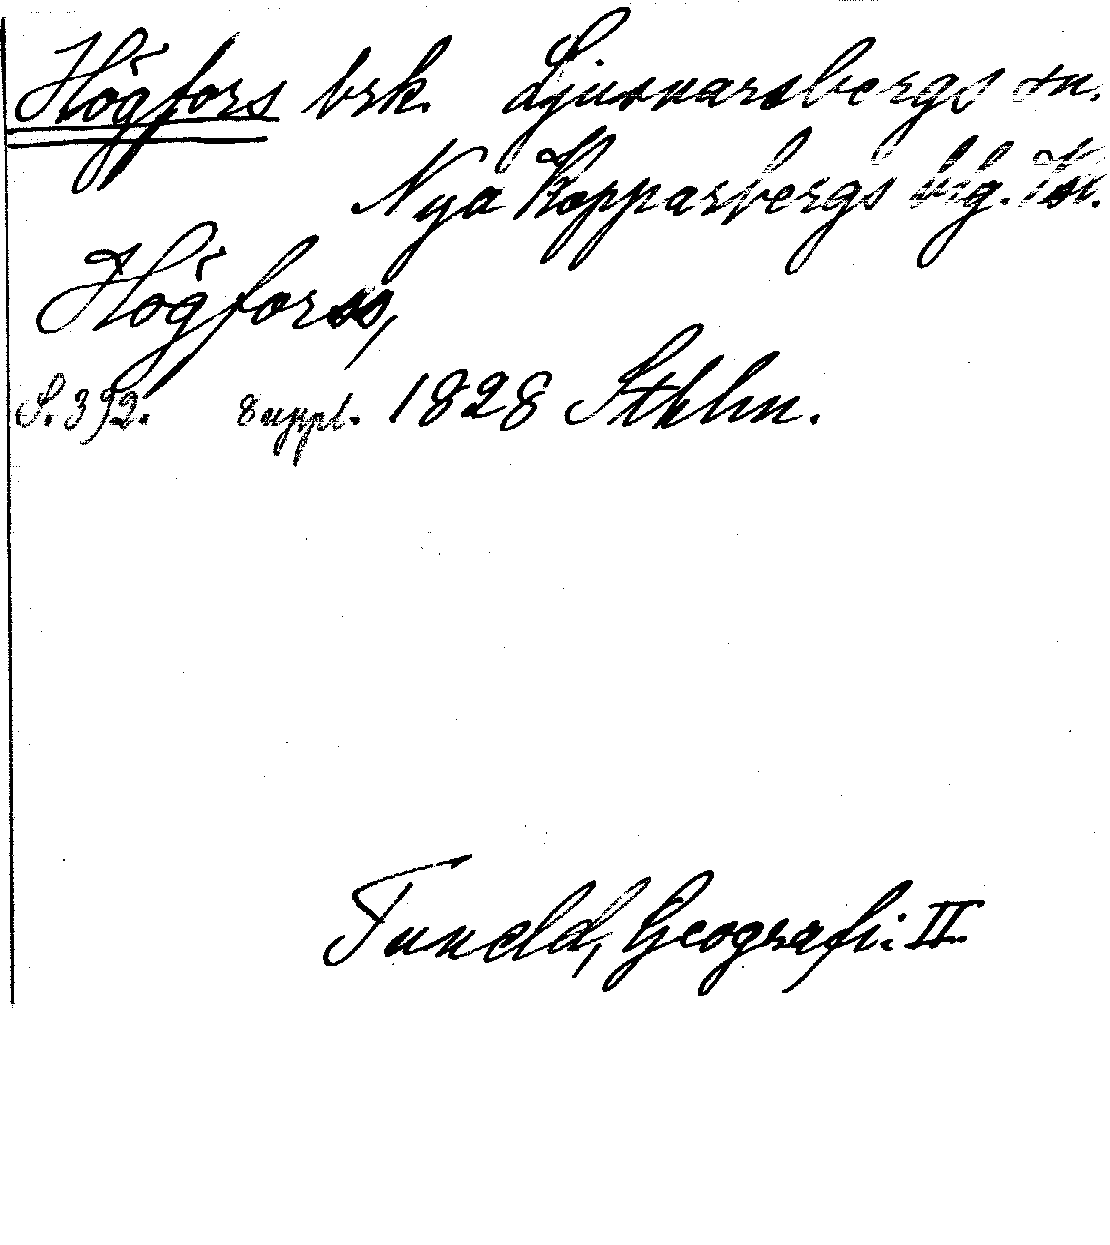 Högfors brk. Ljusnarsbergs sn.
Nya Kopparbergs blg. Kor.
Högforss,
S. 392. 8 uppl. 1828 Sthlm.
Tuneld, Geografi. II.